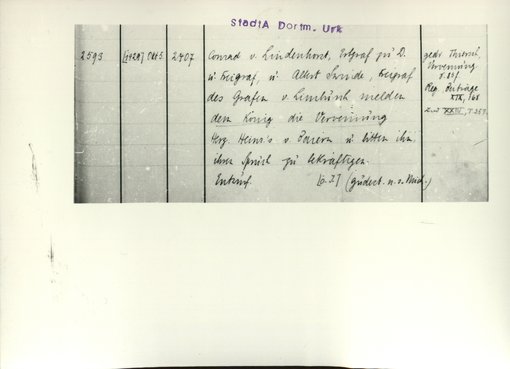 StadtA Dortm. Urk
2593
[1429] Okt 5.
2407
Conrad v. Lindenhorst, Erbgraf zu D.
u Freigraf, u Albert Swinde, Freigraf
des Grafen v. Limburg melden
dem König die Vervemung
Herz. Heinr's v. Baiern u. bitten ihn,
ihren Spruch zu bekräftigen.
Entwurf.
(gedruckt. n. s. Mscr.)
gedr. Thiersch,
Vervemung
Reg. Beiträge
XIX, 168